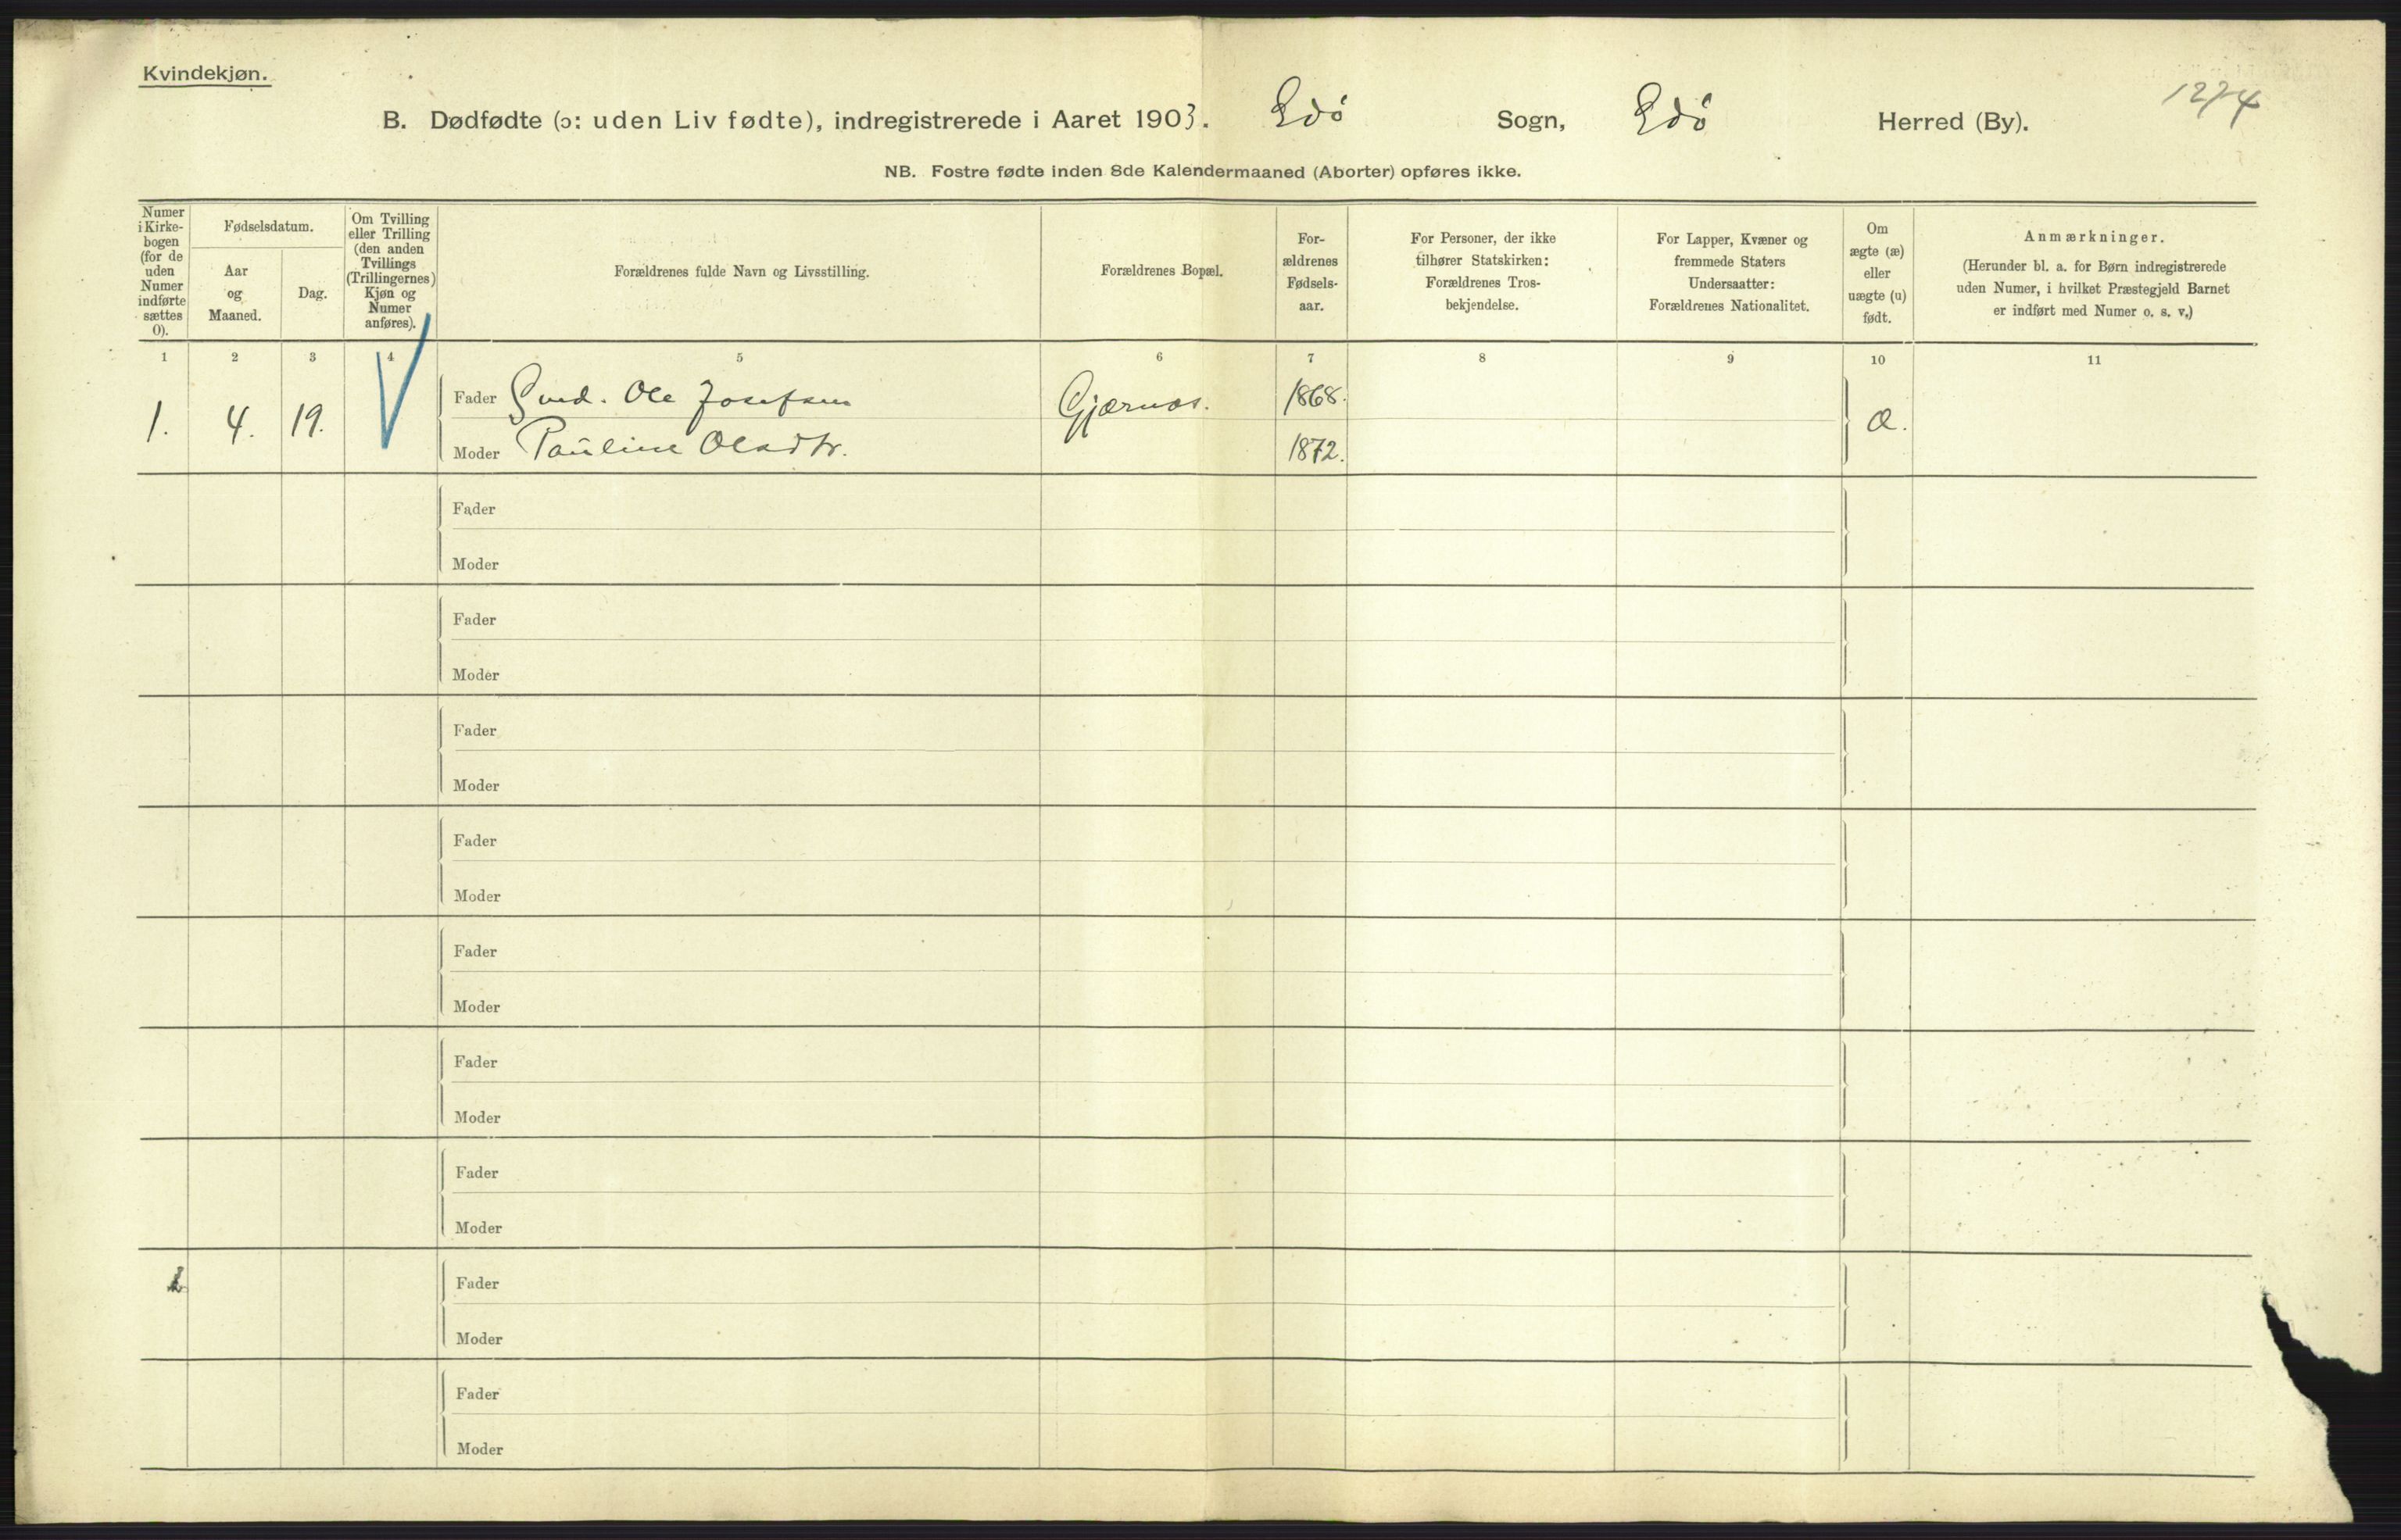 Kvindekjøn.
1274
B. Dødfødte (ɔ: uden Liv fødte), indregistrerede i Aaret 1903. Edö Sogn, Edö Herred (By).
NB. Fostre fødte inden 8de Kalendermaaned (Aborter) opføres ikke.
Numer i Kirkebogen (for de uden Numer indførte sættes 0).
Fødselsdatum.
Aar og Maaned.
Dag.
Om Tvilling eller Trilling (den anden Tvillings (Trillingernes) Kjøn og Numer anføres).
Forældrenes fulde Navn og Livsstilling.
Forældrenes Bopæl.
Forældrenes Fødselsaar.
For Personer, der ikke tilhører Statskirken: Forældrenes Trosbekjendelse.
For Lapper, Kvæner og fremmede Staters Undersaatter: Forældrenes Nationalitet.
Om ægte (æ) eller uægte (u) født.
Anmærkninger.
(Herunder bl. a. for Børn indregistrerede uden Numer, i hvilket Præstegjeld Barnet er indført med Numer o. s. v.)
1 2 3 4 5 6 7 8 9 10 11
1. 4. 19. Fader Ole Josefsen 1868. Æ.
Moder Pauline Olsdtr. 1872.
Fader
Moder
Fader
Moder
Fader
Moder
Fader
Moder
Fader
Moder
Fader
Moder
Fader
Moder
Fader
Moder
Fader
Moder